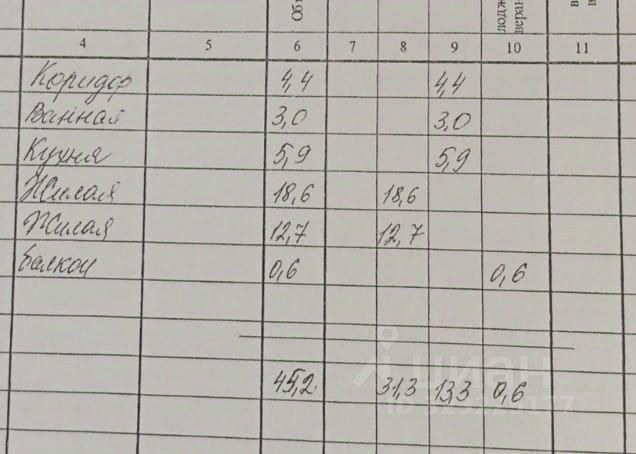 Об
лодж
веран
4 5 6 7 8 9 10 11
Коридор 4,4 4,4
Ванная 3,0 3,0
Кухня 5,9 5,9
Жилая 18,6 18,6
Жилая 12,7 12,7
балкон 0,6 0,6
45,2 31,3 13,3 0,6
циан